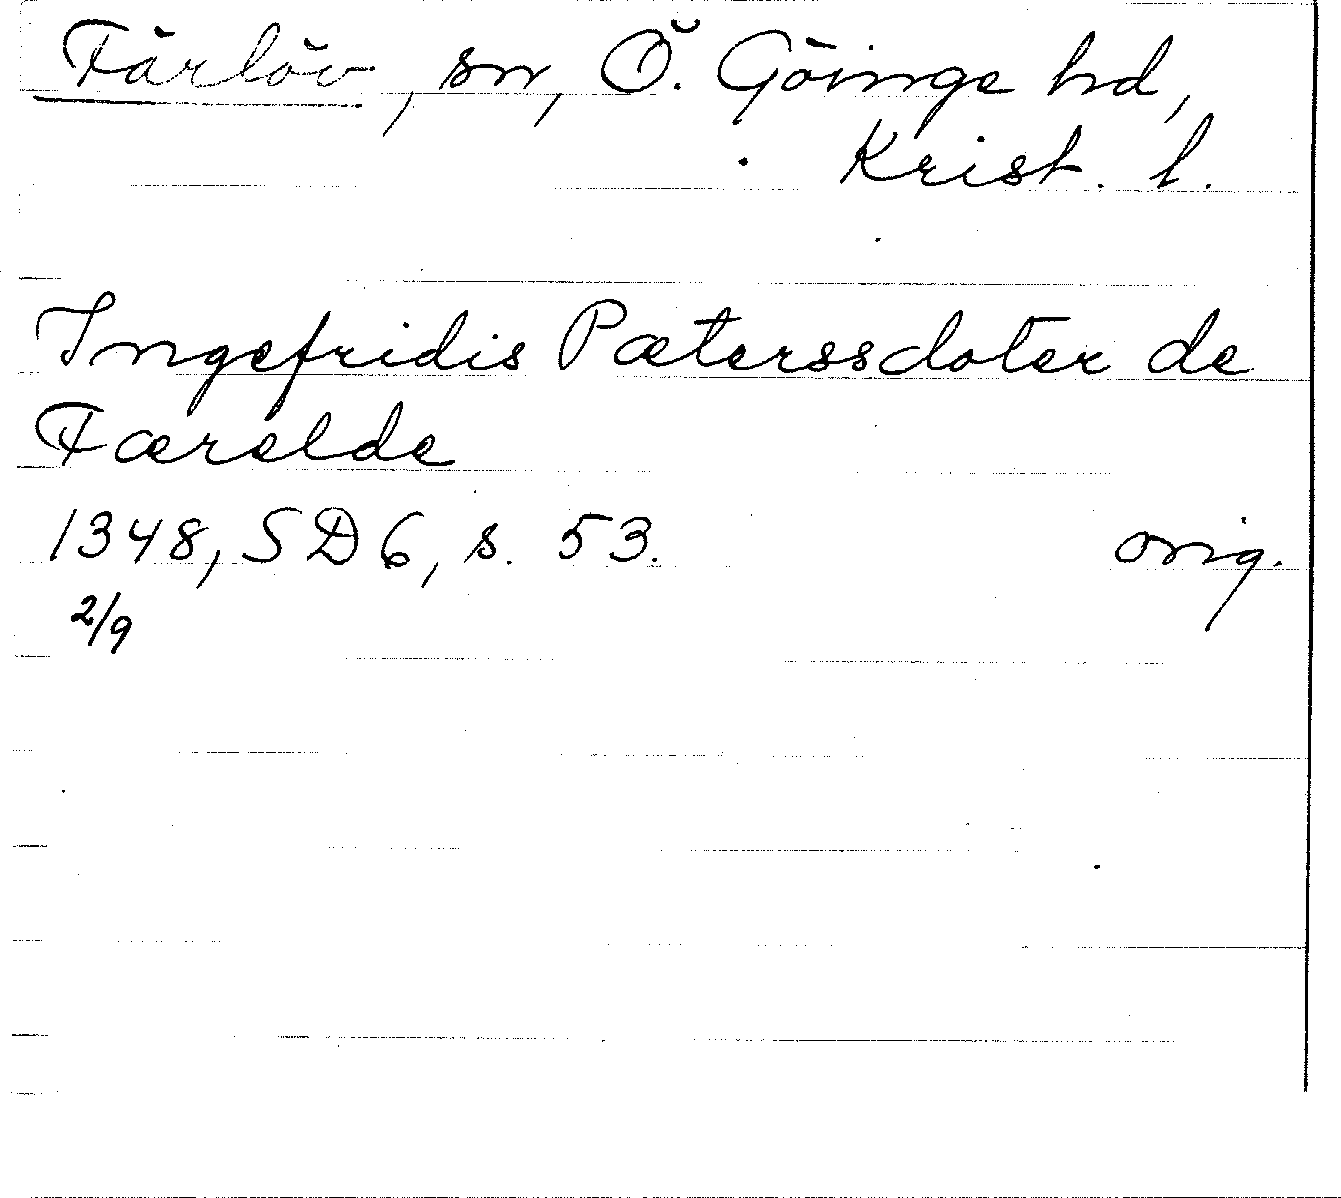 Färlöv, sn, Ö. Göinge hd,
Krist. l.
Ingefridis Pæterssdoter de
Færelde
1348, SD 6, s. 53. orig.
2/9